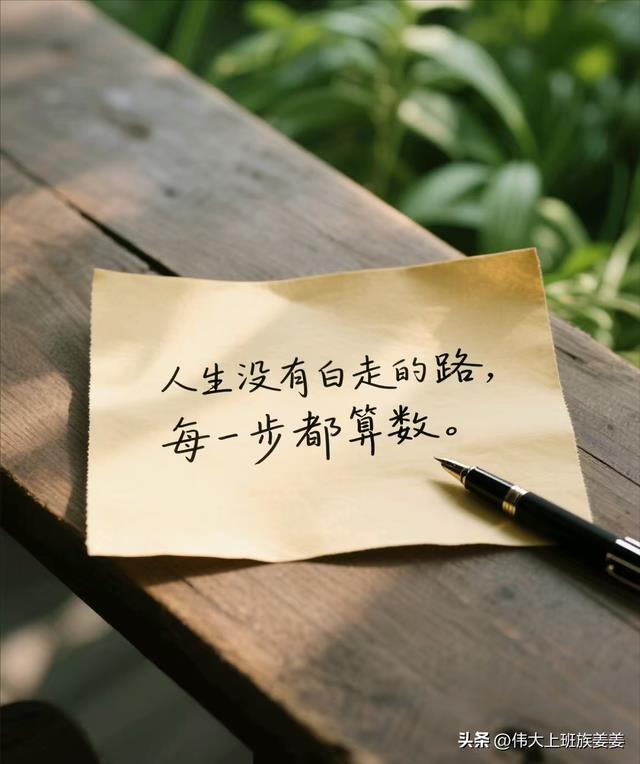 人生没有白走的路，
每一步都算数。
头条 @伟大上班族姜姜